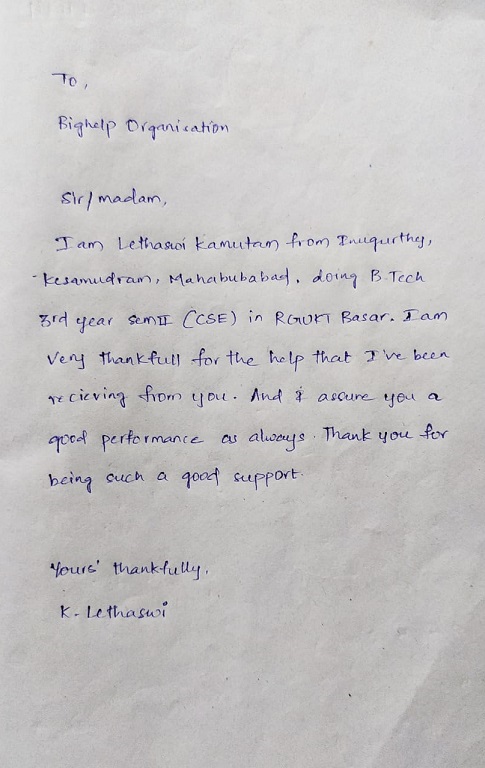 To,
Bighelp Organisation
Sir/madam,
I am Lethaswi Kamutam from Inugurthy,
Kesamudram, Mahabubabad. doing B.Tech
3rd year sem II (CSE) in RGUKT Basar. I am
very thankfull for the help that I've been
recieving from you. And I assure you a
good performance as always. Thank you for
being such a good support.
Yours' thankfully,
K. Lethaswi